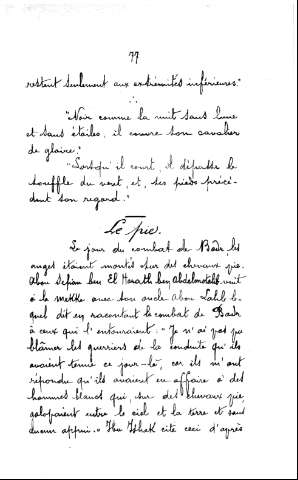 77
restent seulement aux extrémités inférieures."
"Noir comme la nuit sans lune
et sans étoiles, il couvre son cavalier
de gloire."
"Lorsqu'il court, il dépasse le
souffle du vent, et, ses pieds précè-
dent son regard."
Le pie.
Le jour du combat de Badr, les
anges étaient montés sur des chevaux pie.
Abou Sofian ben El Harath ben Abdelmotaleb vint
à la Mekke avec son oncle Abou Lahb le-
quel dit en racontant le combat de Badr
à ceux qui l'entouraient: "Je n'ai pas pu
blâmer les guerriers de la conduite qu'ils
avaient tenue ce jour-là, car ils m'ont
répondu qu'ils avaient eu affaire à des
hommes blancs qui, sur des chevaux pie,
galopaient entre le ciel et la terre et sans
aucun appui." Ibn Ishak cite ceci d'après